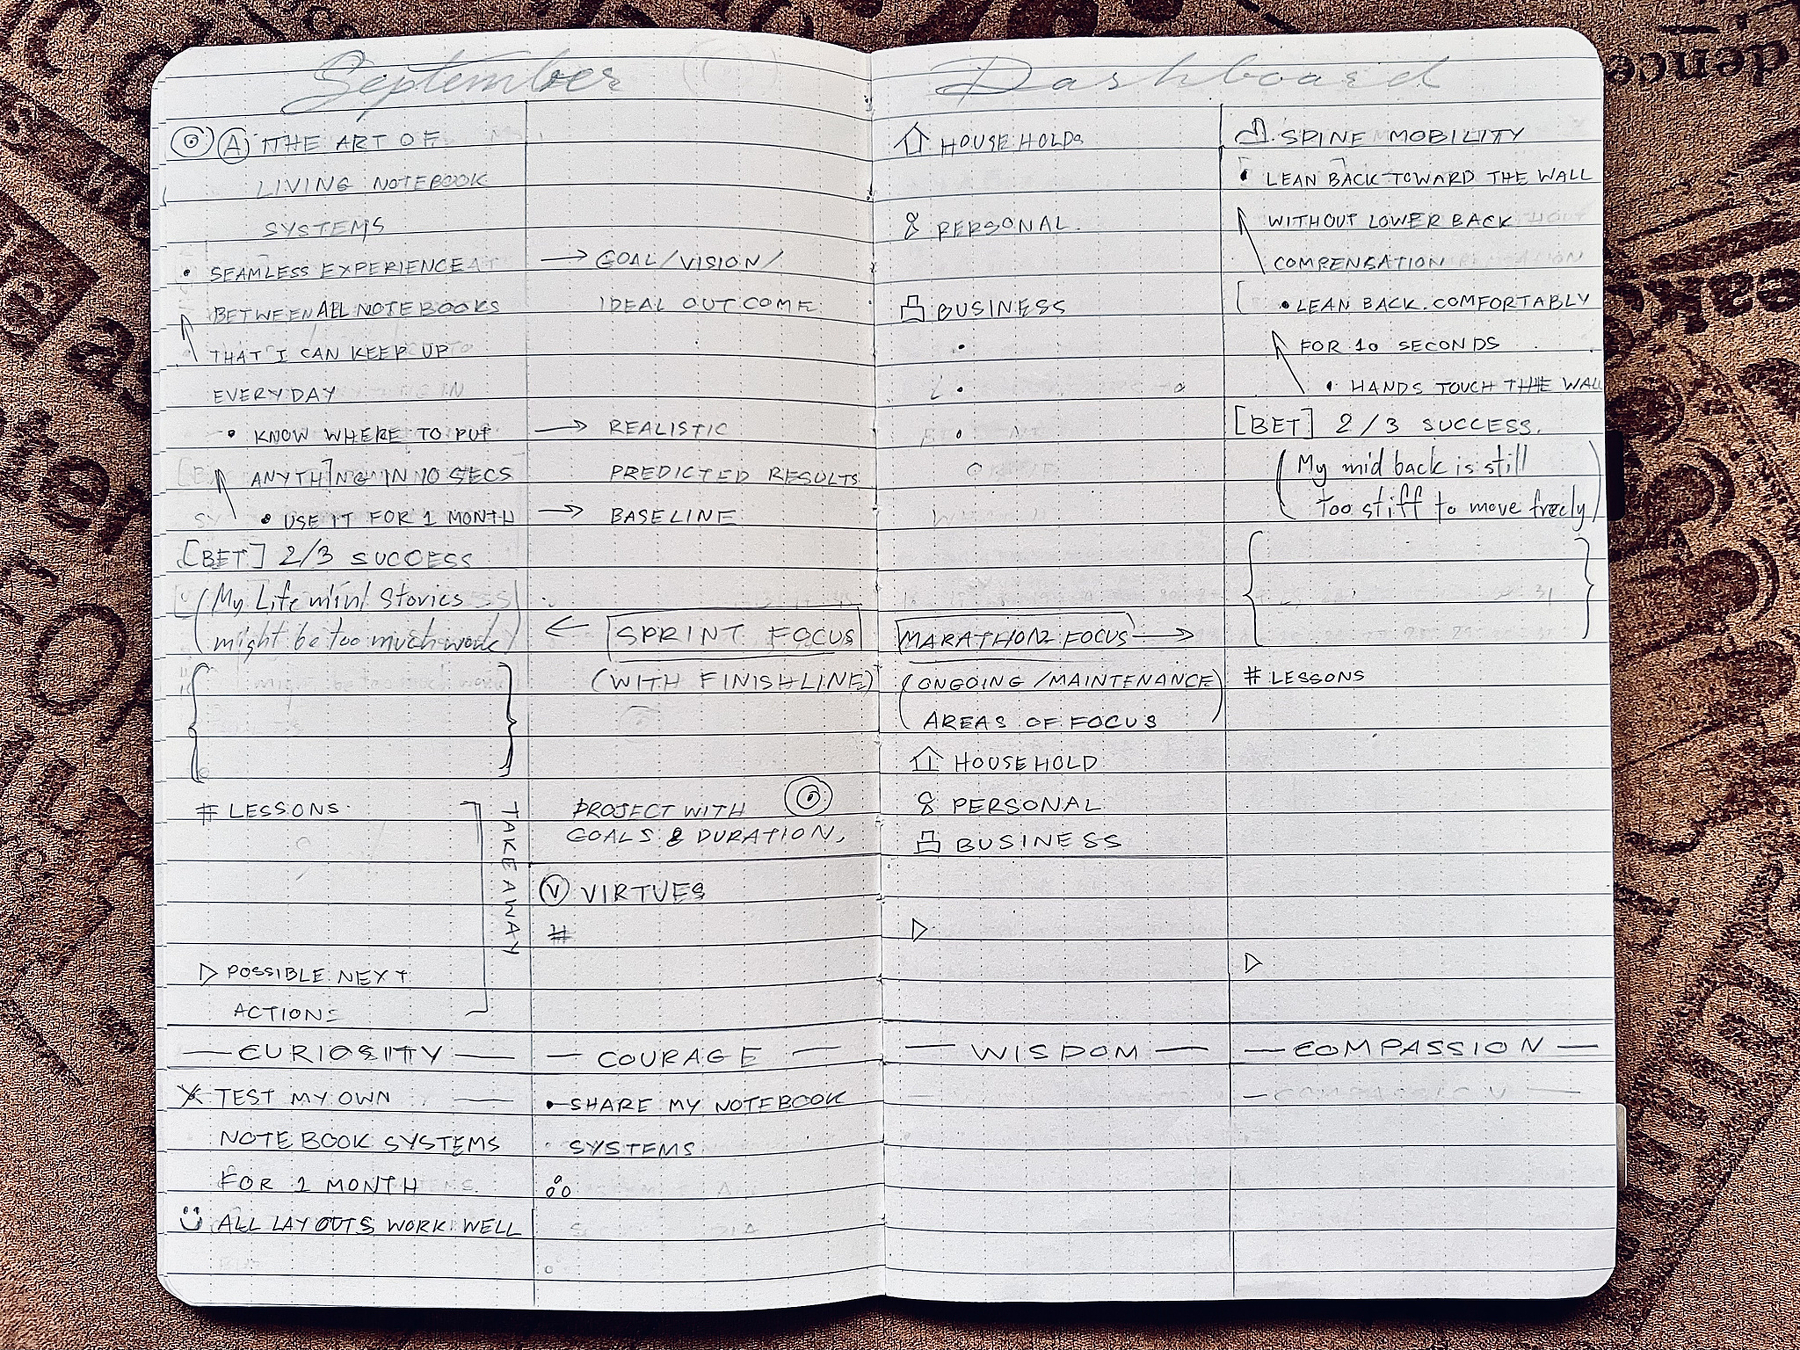 September
THE ART OF
LIVING NOTEBOOK
SYSTEMS
• SEAMLESS EXPERIENCE
BETWEEN ALL NOTEBOOKS
THAT I CAN KEEP UP
EVERYDAY
• KNOW WHERE TO PUT
ANYTHING IN 10 SECS
• USE IT FOR 1 MONTH
[BET] 2/3 SUCCESS
(My Life mini Stories
might be too much work)
# LESSONS
TAKE AWAY
▷ POSSIBLE NEXT
ACTIONS
— CURIOSITY —
X TEST MY OWN
NOTEBOOK SYSTEMS
FOR 1 MONTH
ALL LAYOUTS WORK WELL
→ GOAL/VISION/
IDEAL OUTCOME
→ REALISTIC
PREDICTED RESULTS
→ BASELINE
← SPRINT FOCUS
(WITH FINISHLINE)
PROJECT WITH
GOALS & DURATION,
Ⓥ VIRTUES
#
— COURAGE —
• SHARE MY NOTEBOOK
SYSTEMS
Dashboard
HOUSEHOLDS
PERSONAL
BUSINESS
MARATHON FOCUS →
(ONGOING /MAINTENANCE)
AREAS OF FOCUS
HOUSEHOLD
PERSONAL
BUSINESS
▷
— WISDOM —
SPINE MOBILITY
• LEAN BACK TOWARD THE WALL
WITHOUT LOWER BACK
COMPENSATION
• LEAN BACK COMFORTABLY
FOR 10 SECONDS
• HANDS TOUCH THE WALL
[BET] 2/3 SUCCESS.
(My mid back is still
too stiff to move freely)
# LESSONS
▷
— COMPASSION —
dence